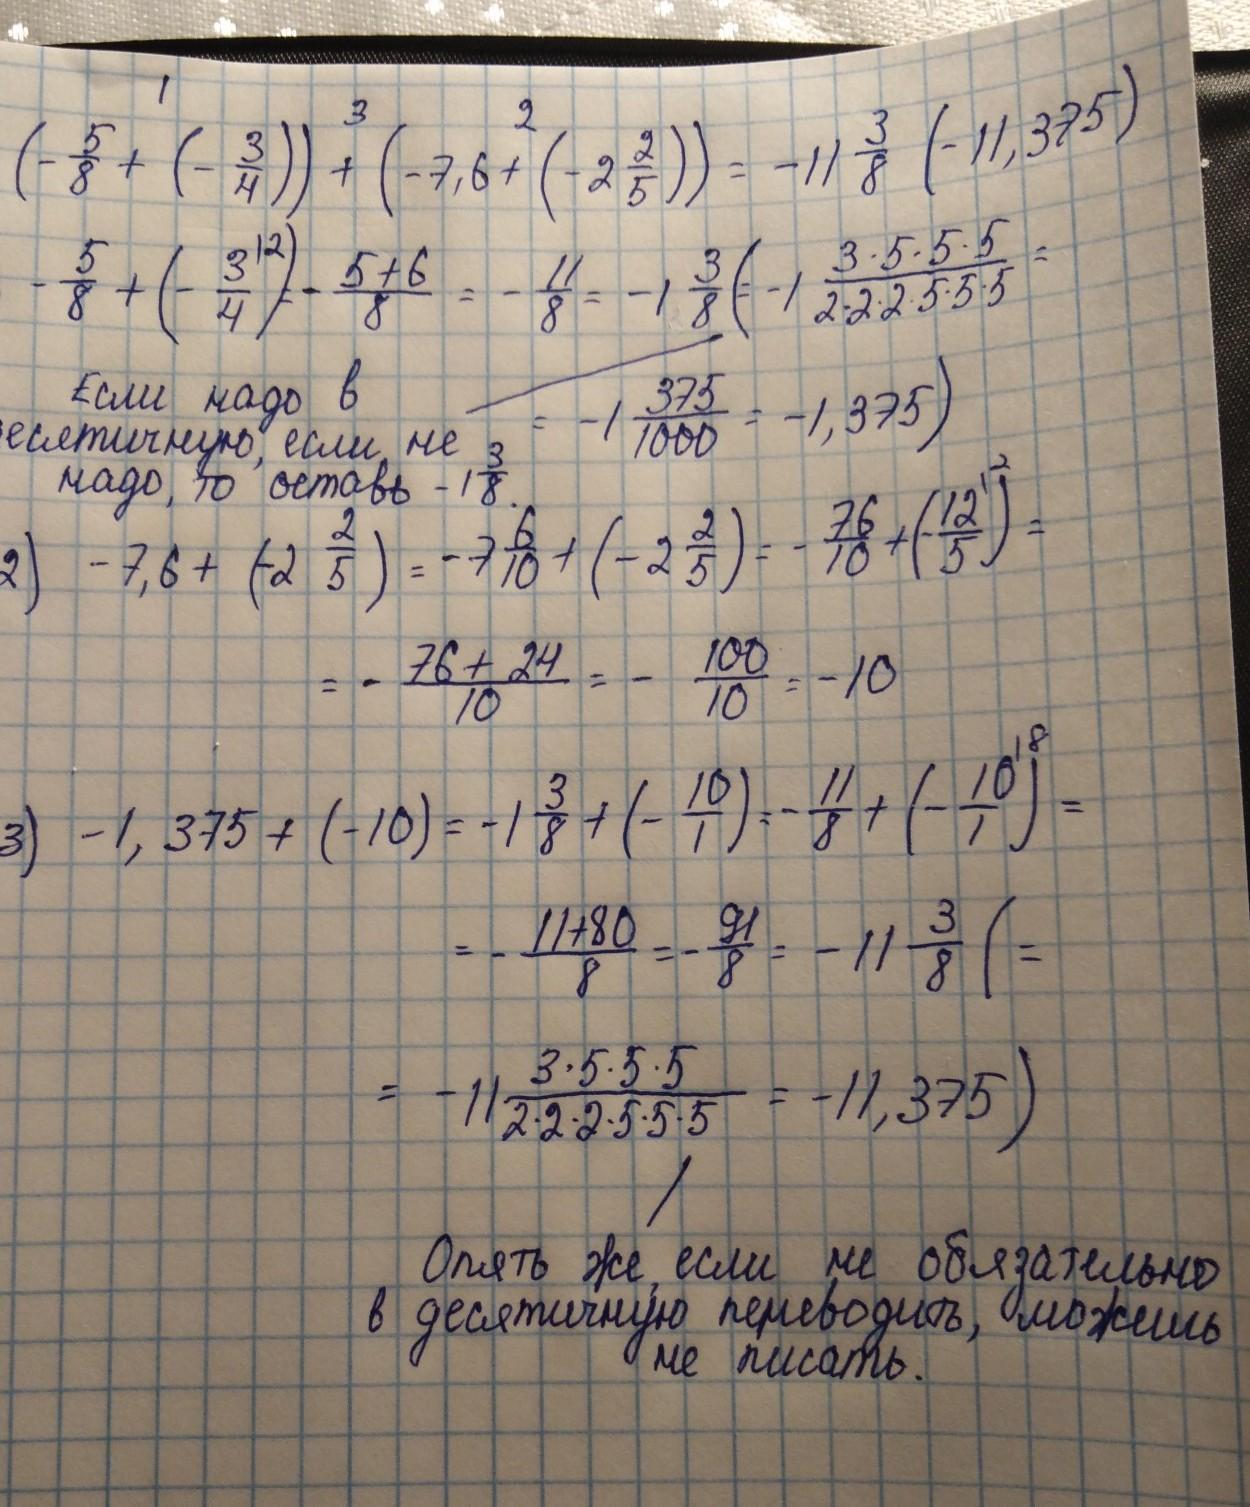 1 3 2
(-5/8 + (-3/4)) + (-7,6 + (-2 2/5)) = -11 3/8 (-11,375)
-5/8 + (-3/4|2) - 5+6/8 = -11/8 = -1 3/8 (= -1 3·5·5·5/2·2·2·5·5·5 =
Если надо в
есятичную, если не
надо, то оставь -1 3/8.
= -1 375/1000 = -1,375)
2) -7,6 + (-2 2/5) = -7 6/10 + (-2 2/5) = -76/10 + (-12/5|2) =
= - 76+24/10 = - 100/10 = -10
3) -1,375 + (-10) = -1 3/8 + (-10/1) = -11/8 + (-10/1|8) =
= - 11+80/8 = - 91/8 = -11 3/8 (=
= -11 3·5·5·5/2·2·2·5·5·5 = -11,375)
Опять же, если не обязательно
в десятичную переводить, можешь
не писать.